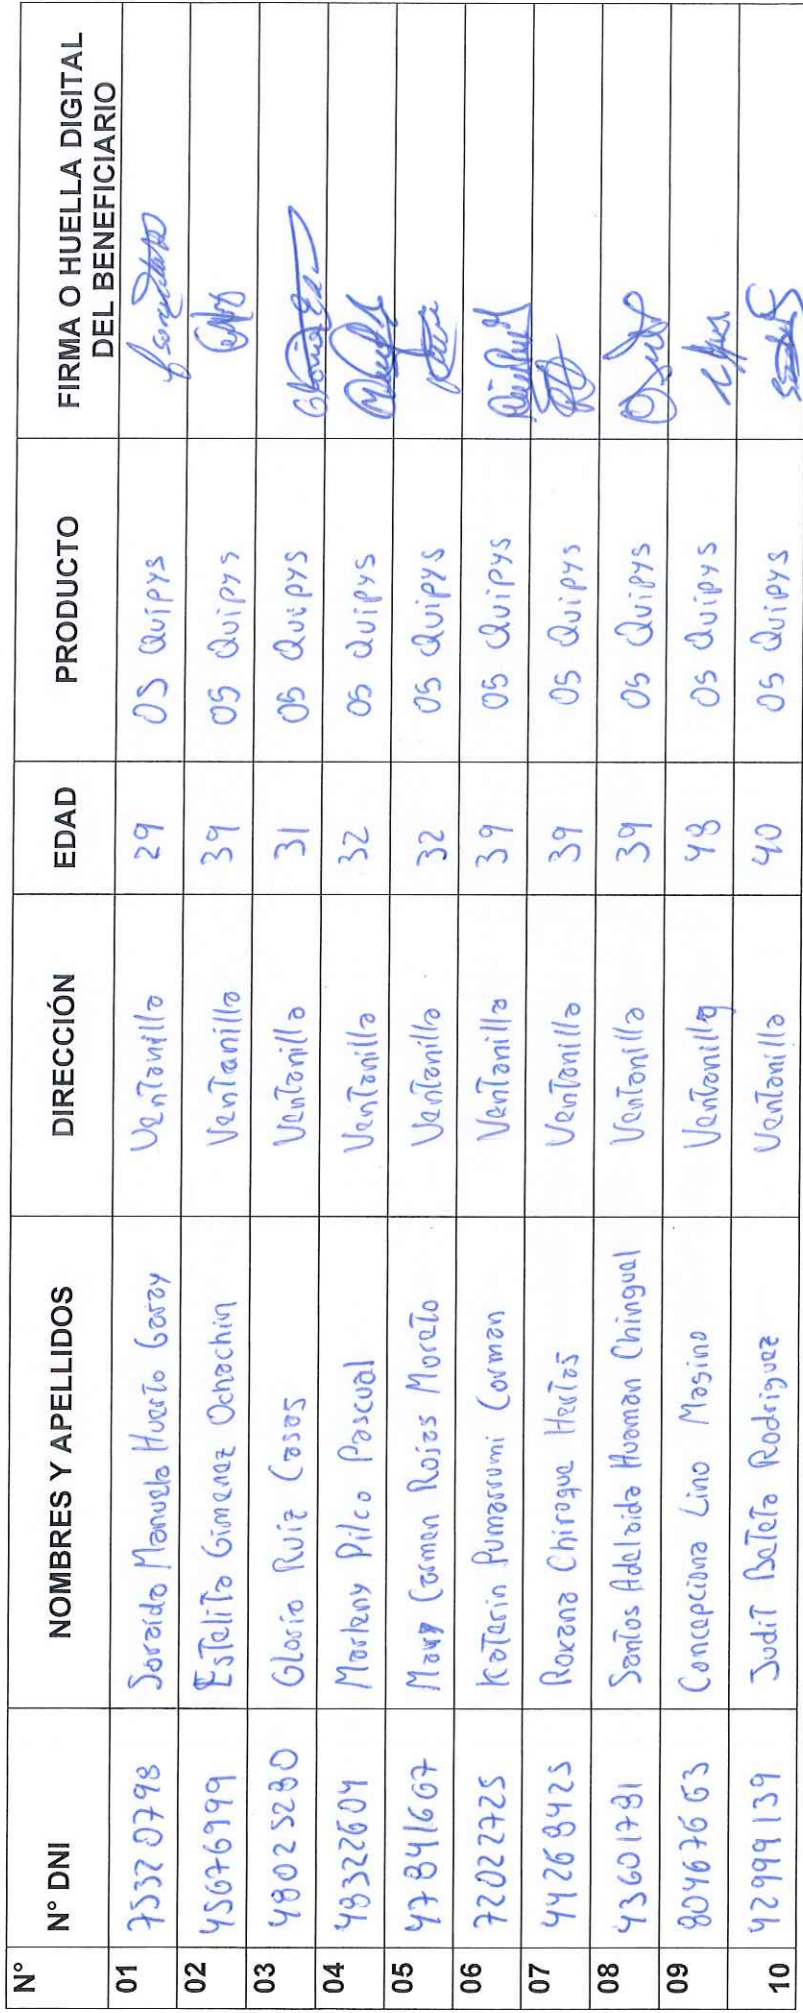 N° N° DNI NOMBRES Y APELLIDOS DIRECCIÓN EDAD PRODUCTO FIRMA O HUELLA DIGITAL
DEL BENEFICIARIO
01 75320798 Soraida Manuela Huerto Garay Ventanilla 29 05 Quipys
02 45676999 Estelita Gimenez Ochachin Ventanilla 39 05 Quipys
03 48025280 Gloria Ruiz Casas Ventanilla 31 05 Quipys
04 48322604 Marleny Pilco Pascual Ventanilla 32 05 Quipys
05 47841667 Mary Carmen Rojas Morato Ventanilla 32 05 Quipys
06 72022725 Katerin Pumarrumi Corman Ventanilla 39 05 Quipys
07 44268425 Roxana Chiroque Hertas Ventanilla 39 05 Quipys
08 43601781 Santos Adelaida Huaman Chingual Ventanilla 39 05 Quipys
09 80467663 Concepciona Lino Masino Ventanilla 48 05 Quipys
10 42999139 Judit Bateta Rodriguez Ventanilla 40 05 Quipys